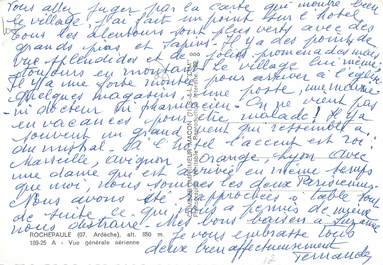 Vous allez juger par la carte qui montre bien
le village j'ai fait un point sur l'hôtel
Tous les alentours sont plus verts avec des
grands pins et sapins. Il y a des points de
vue splendides et de jolies promenades mais
toujours en montant le village lui même
Il y a une forte montée pour arriver à l'église
Quelques magasins, une poste, une mairie
ni docteur ni pharmacien - On ne vient pas
en vacances pour être malade! Il y a
souvent un grand vent qui ressemble à
du mistral. Et à l'hôtel l'accent est roi:
Marseille, avignon, Orange, Lyon avec
une dame qui est arrivée en même temps
que moi, nous sommes les deux Parisiennes
Nous avons été rapprochées à table tout
de suite ce qui nous a permis de mieux
nous distraire - Mes bons baisers à Suzanne
Je vous embrasse tous
deux bien affectueusement
Fernande
ROCHEPAULE (07. Ardèche), alt. 850 m.
103-25 A - Vue générale aérienne